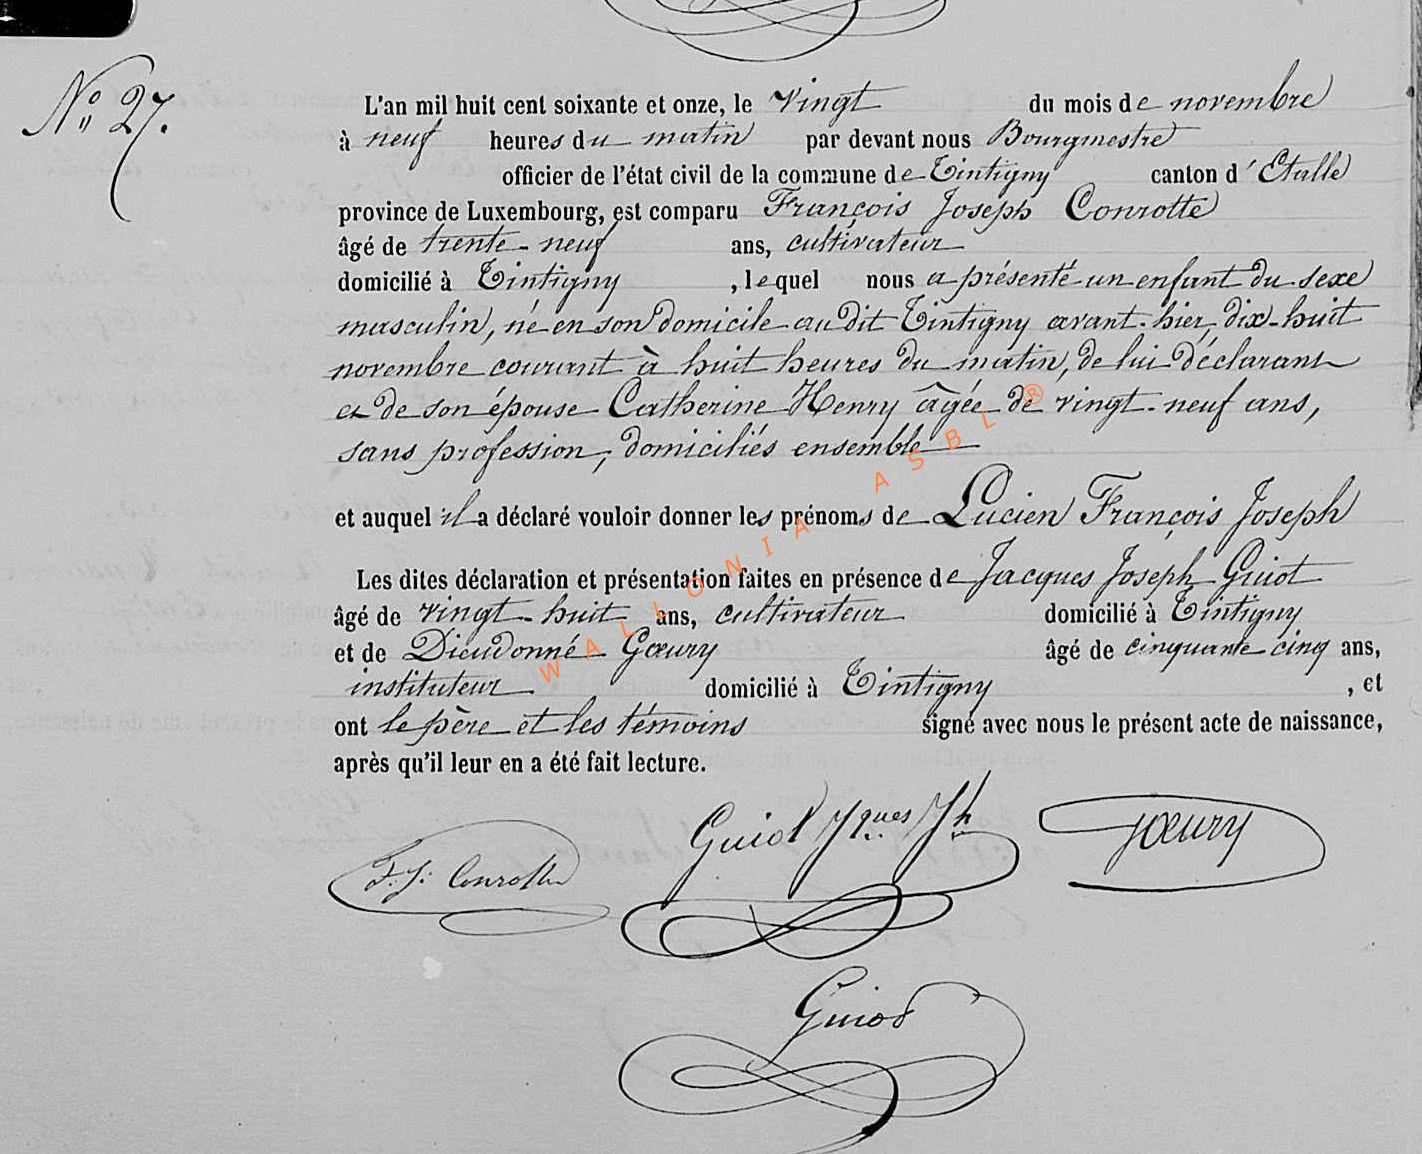 N° 27.
L'an mil huit cent soixante et onze, le vingt du mois de novembre
à neuf heures du matin par devant nous Bourgmestre
officier de l'état civil de la commune de Tintigny canton d'Etalle
province de Luxembourg, est comparu François Joseph Conrotte
âgé de trente-neuf ans, cultivateur
domicilié à Tintigny , lequel nous a présenté un enfant du sexe
masculin, né en son domicile au dit Tintigny avant-hier, dix-huit
novembre courant à huit heures du matin, de lui déclarant
et de son épouse Catherine Henry âgée de vingt-neuf ans,
sans profession, domiciliés ensemble
et auquel il a déclaré vouloir donner les prénoms de Lucien François Joseph
Les dites déclaration et présentation faites en présence de Jacques Joseph Guiot
âgé de vingt-huit ans, cultivateur domicilié à Tintigny
et de Dieudonné Gœury âgé de cinquante cinq ans,
instituteur domicilié à Tintigny , et
ont le père et les témoins signé avec nous le présent acte de naissance,
après qu'il leur en a été fait lecture.
F. J. Conrotte Guiot Jques Jh Gœury
Guiot
WALLONIA ASBL ®